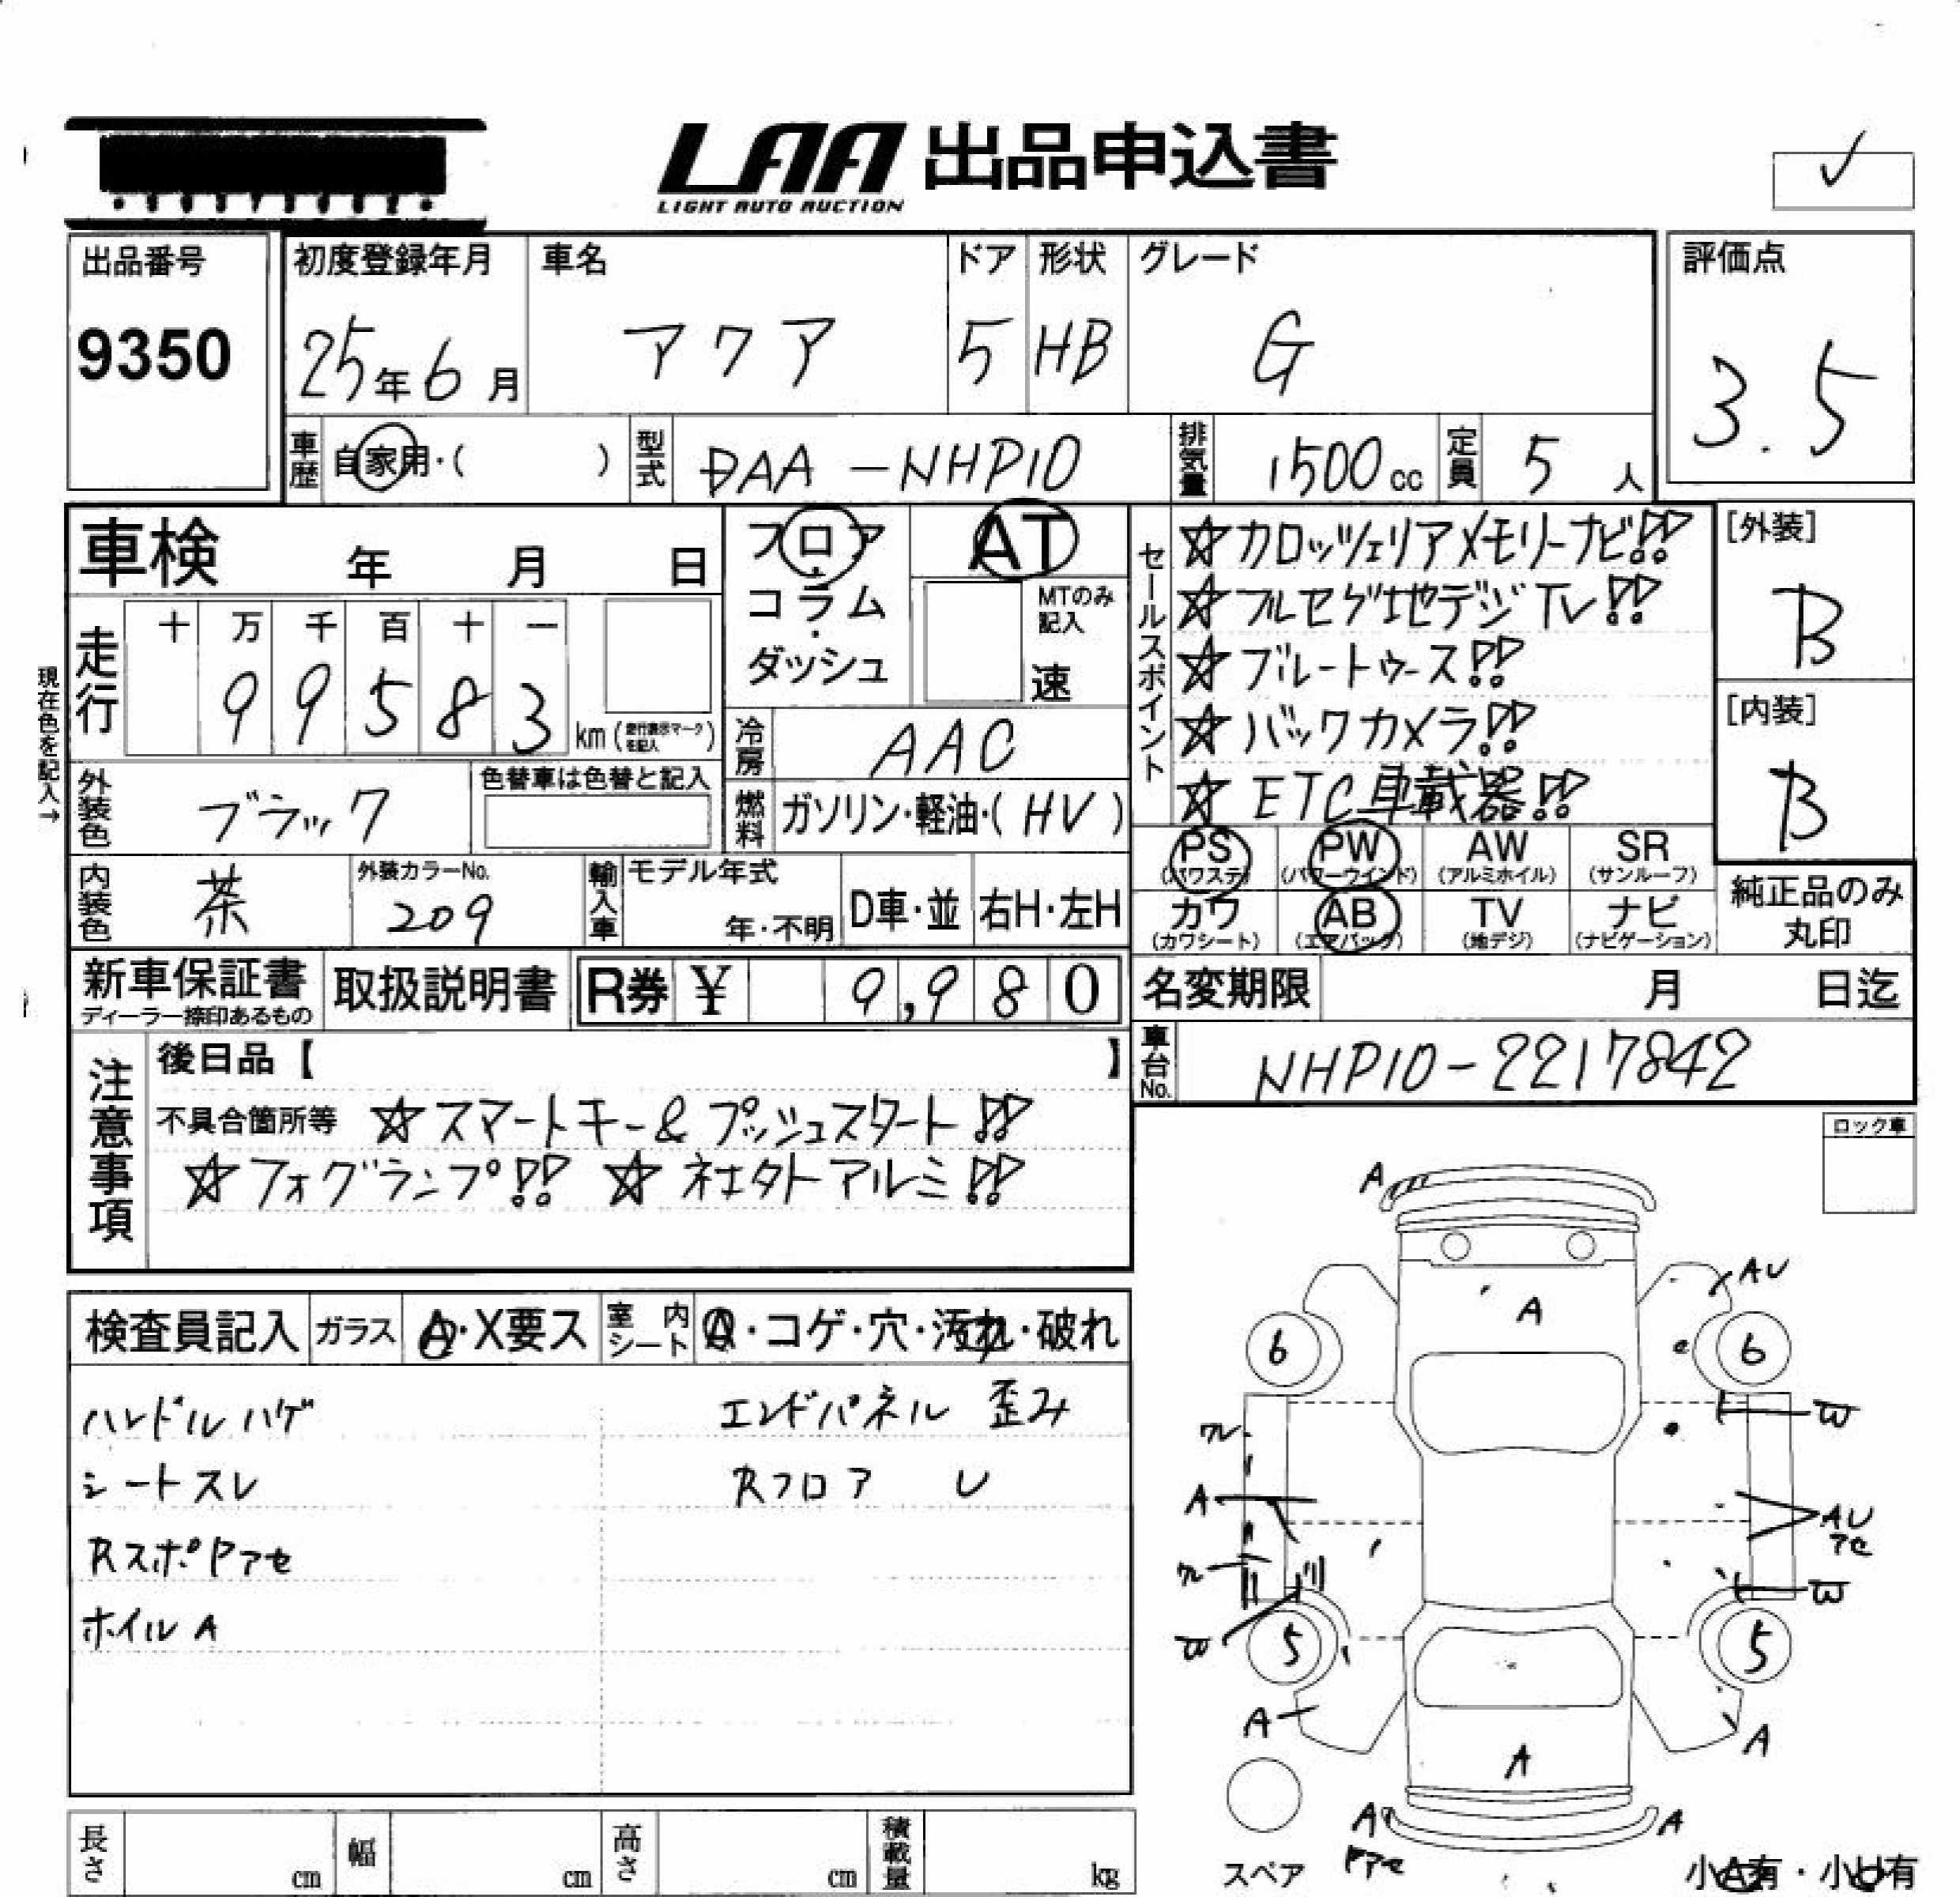 LAA 出品申込書
LIGHT AUTO AUCTION
出品番号
9350
初度登録年月
25年6月
車名
アクア
ドア
5
形状
HB
グレード
G
評価点
3.5
車歴
自家用・( )
型式
DAA-NHP10
排気量
1500cc
定員
5人
車検 年 月 日
フロア・コラム・ダッシュ
AT
MTのみ記入
速
セールスポイント
☆カロッツェリアメモリーナビ!!
☆フルセグ地デジTV!!
☆ブルートゥース!!
☆バックカメラ!!
☆ETC車載器!!
[外装]
B
[内装]
B
現在色を記入→
走行
十 万 千 百 十 一
9 9 5 8 3
km(走行表示マークを記入)
冷房
AAC
外装色
ブラック
色替車は色替と記入
燃料
ガソリン・軽油・(HV)
PS
(パワステ)
PW
(パワーウインド)
AW
(アルミホイル)
SR
(サンルーフ)
カワ
(カワシート)
AB
(エアバック)
TV
(地デジ)
ナビ
(ナビゲーション)
純正品のみ
丸印
内装色
茶
外装カラーNo.
209
輸入車
モデル年式
年・不明
D車・並
右H・左H
新車保証書
ディーラー捺印あるもの
取扱説明書
R券 ¥ 9,980
名変期限 月 日迄
車台No.
NHP10-2217842
注意事項
後日品【 】
不具合箇所等 ☆スマートキー&プッシュスタート!!
☆フォグランプ!! ☆社外アルミ!!
ロック車
検査員記入
ガラス
A・X要ス
室内シート
・コゲ・穴・汚れ・破れ
ハンドルハゲ
エンドパネル 歪み
シートスレ
Rフロア U
RスポPアセ
ホイルA
A
AU
A
6
6
W
A
AU
アセ
W
W
5
5
A
A
A
A
A
スペア
小A有・小U有
長さ cm
幅 cm
高さ cm
積載量 kg